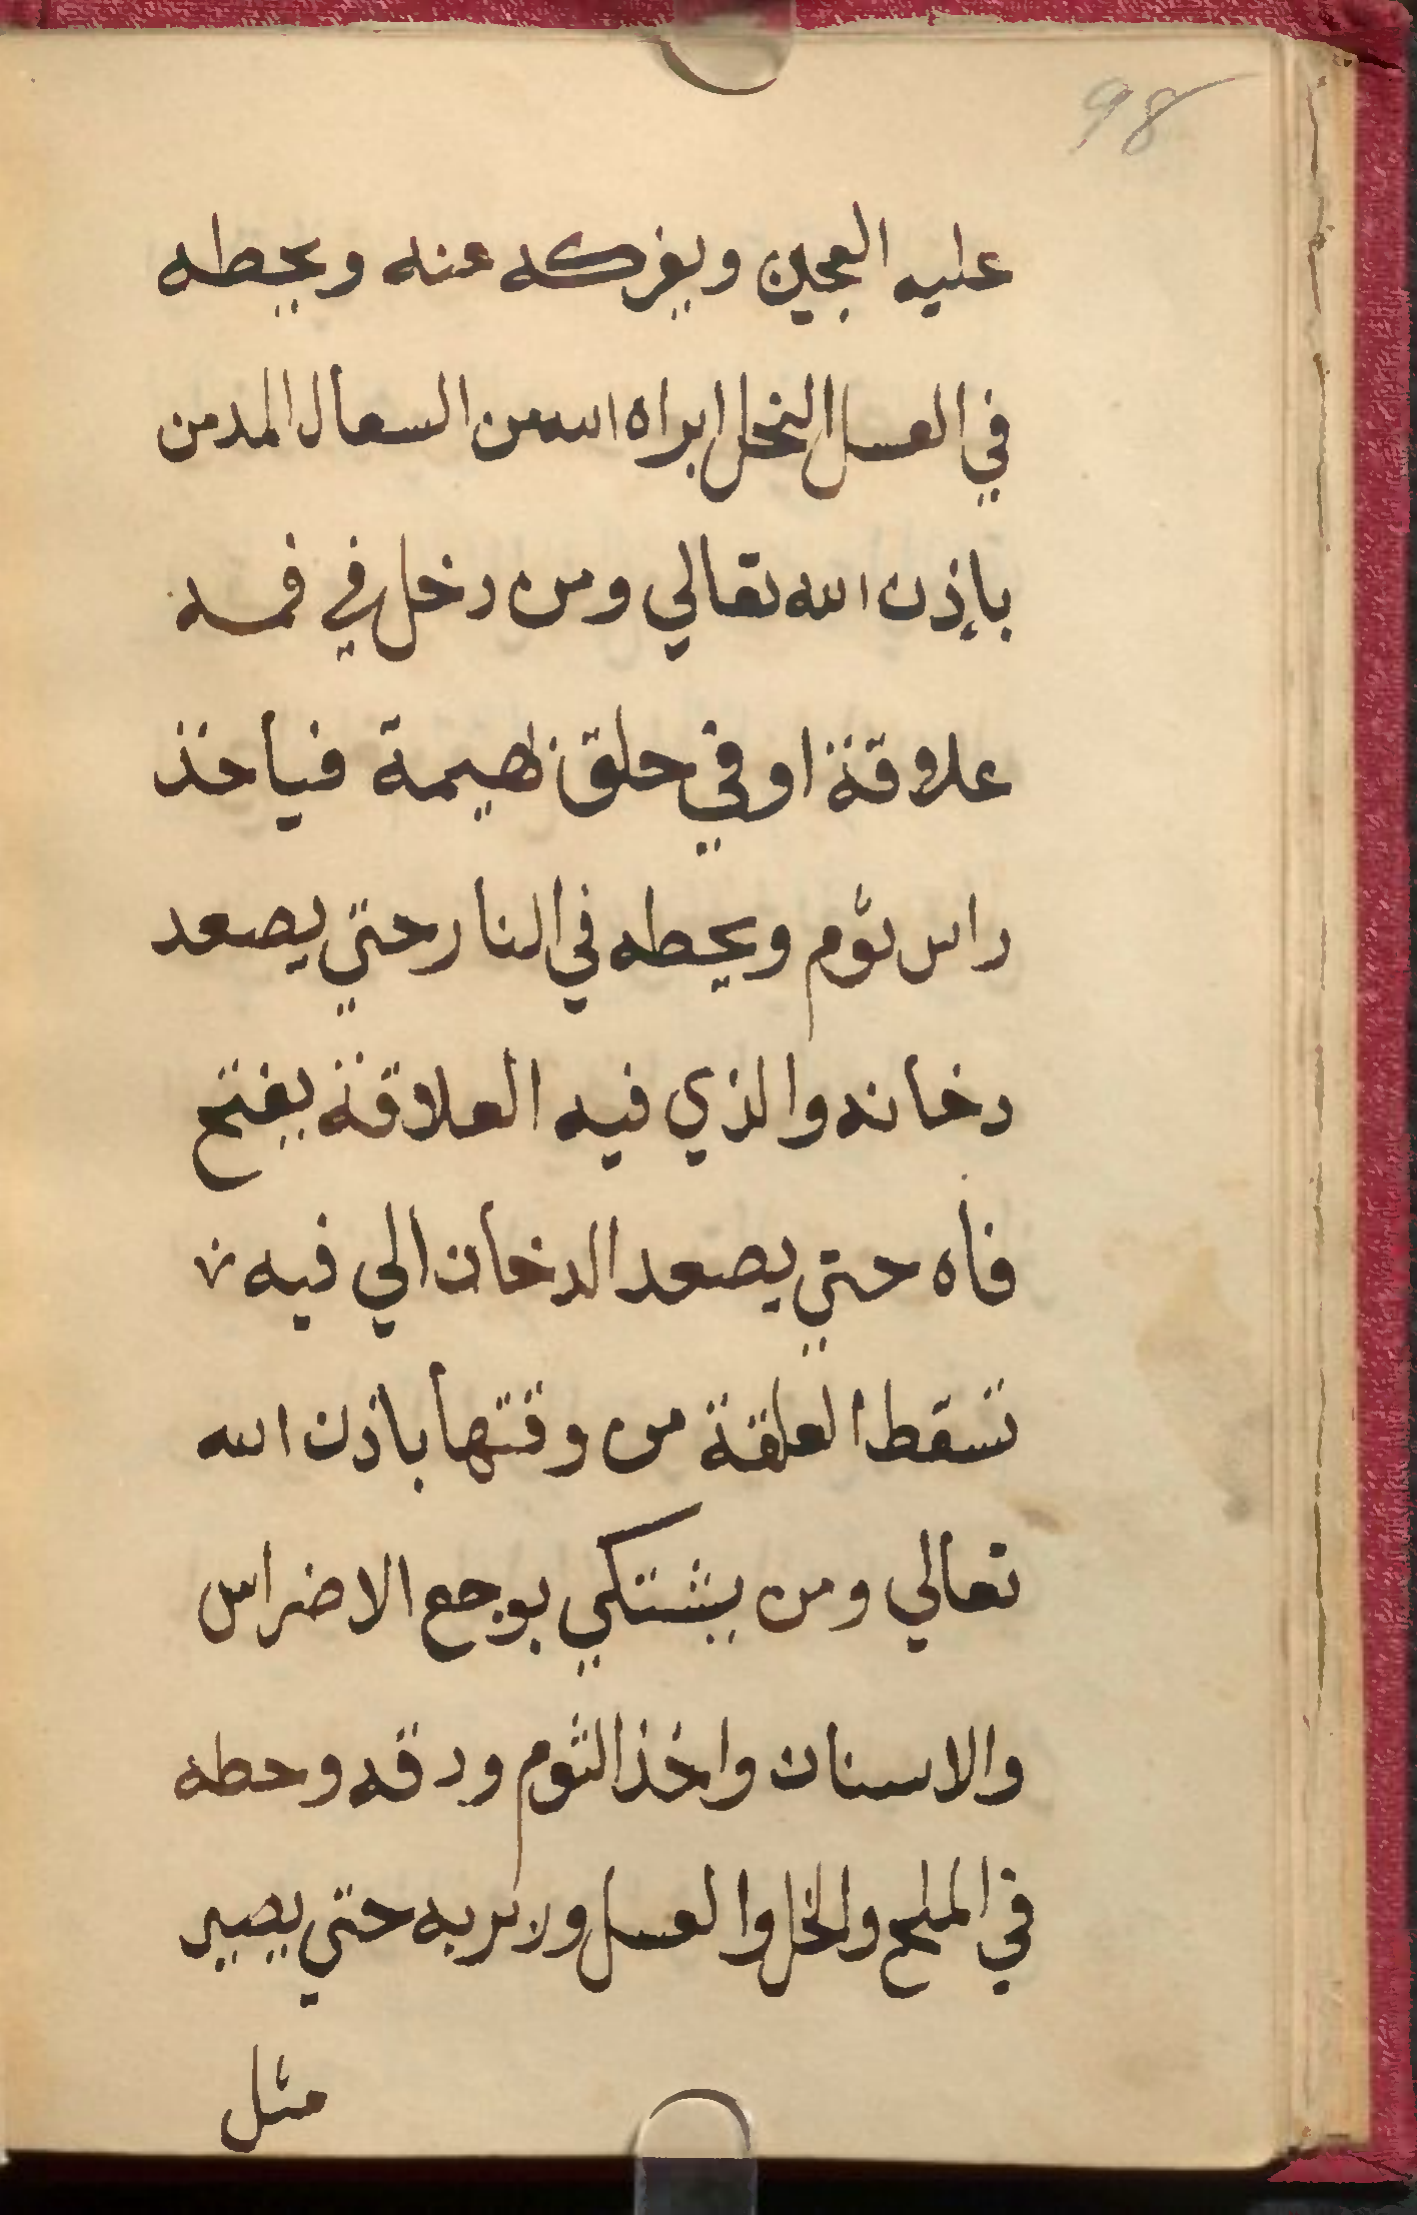 98
عليه العجين ويفركه عنه ويحطه
في العسل النحل ابراه الله من السعال المدمن
باذن الله تعالي ومن دخل في فمه
علاقة او في حلق بهيمة فياخذ
راس ثوم ويحطه في النار حتي يصعد
دخانه والذي فيه العلاقة يفتح
فاه حتي يصعد الدخان الي فيه
تسقط العلقة من وقتها باذن الله
تعالي ومن يشتكي بوجع الاضراس
والاسنان واخذ الثوم ودقه وحطه
في الملح والخل والعسل ودربه حتي يصير
مثل